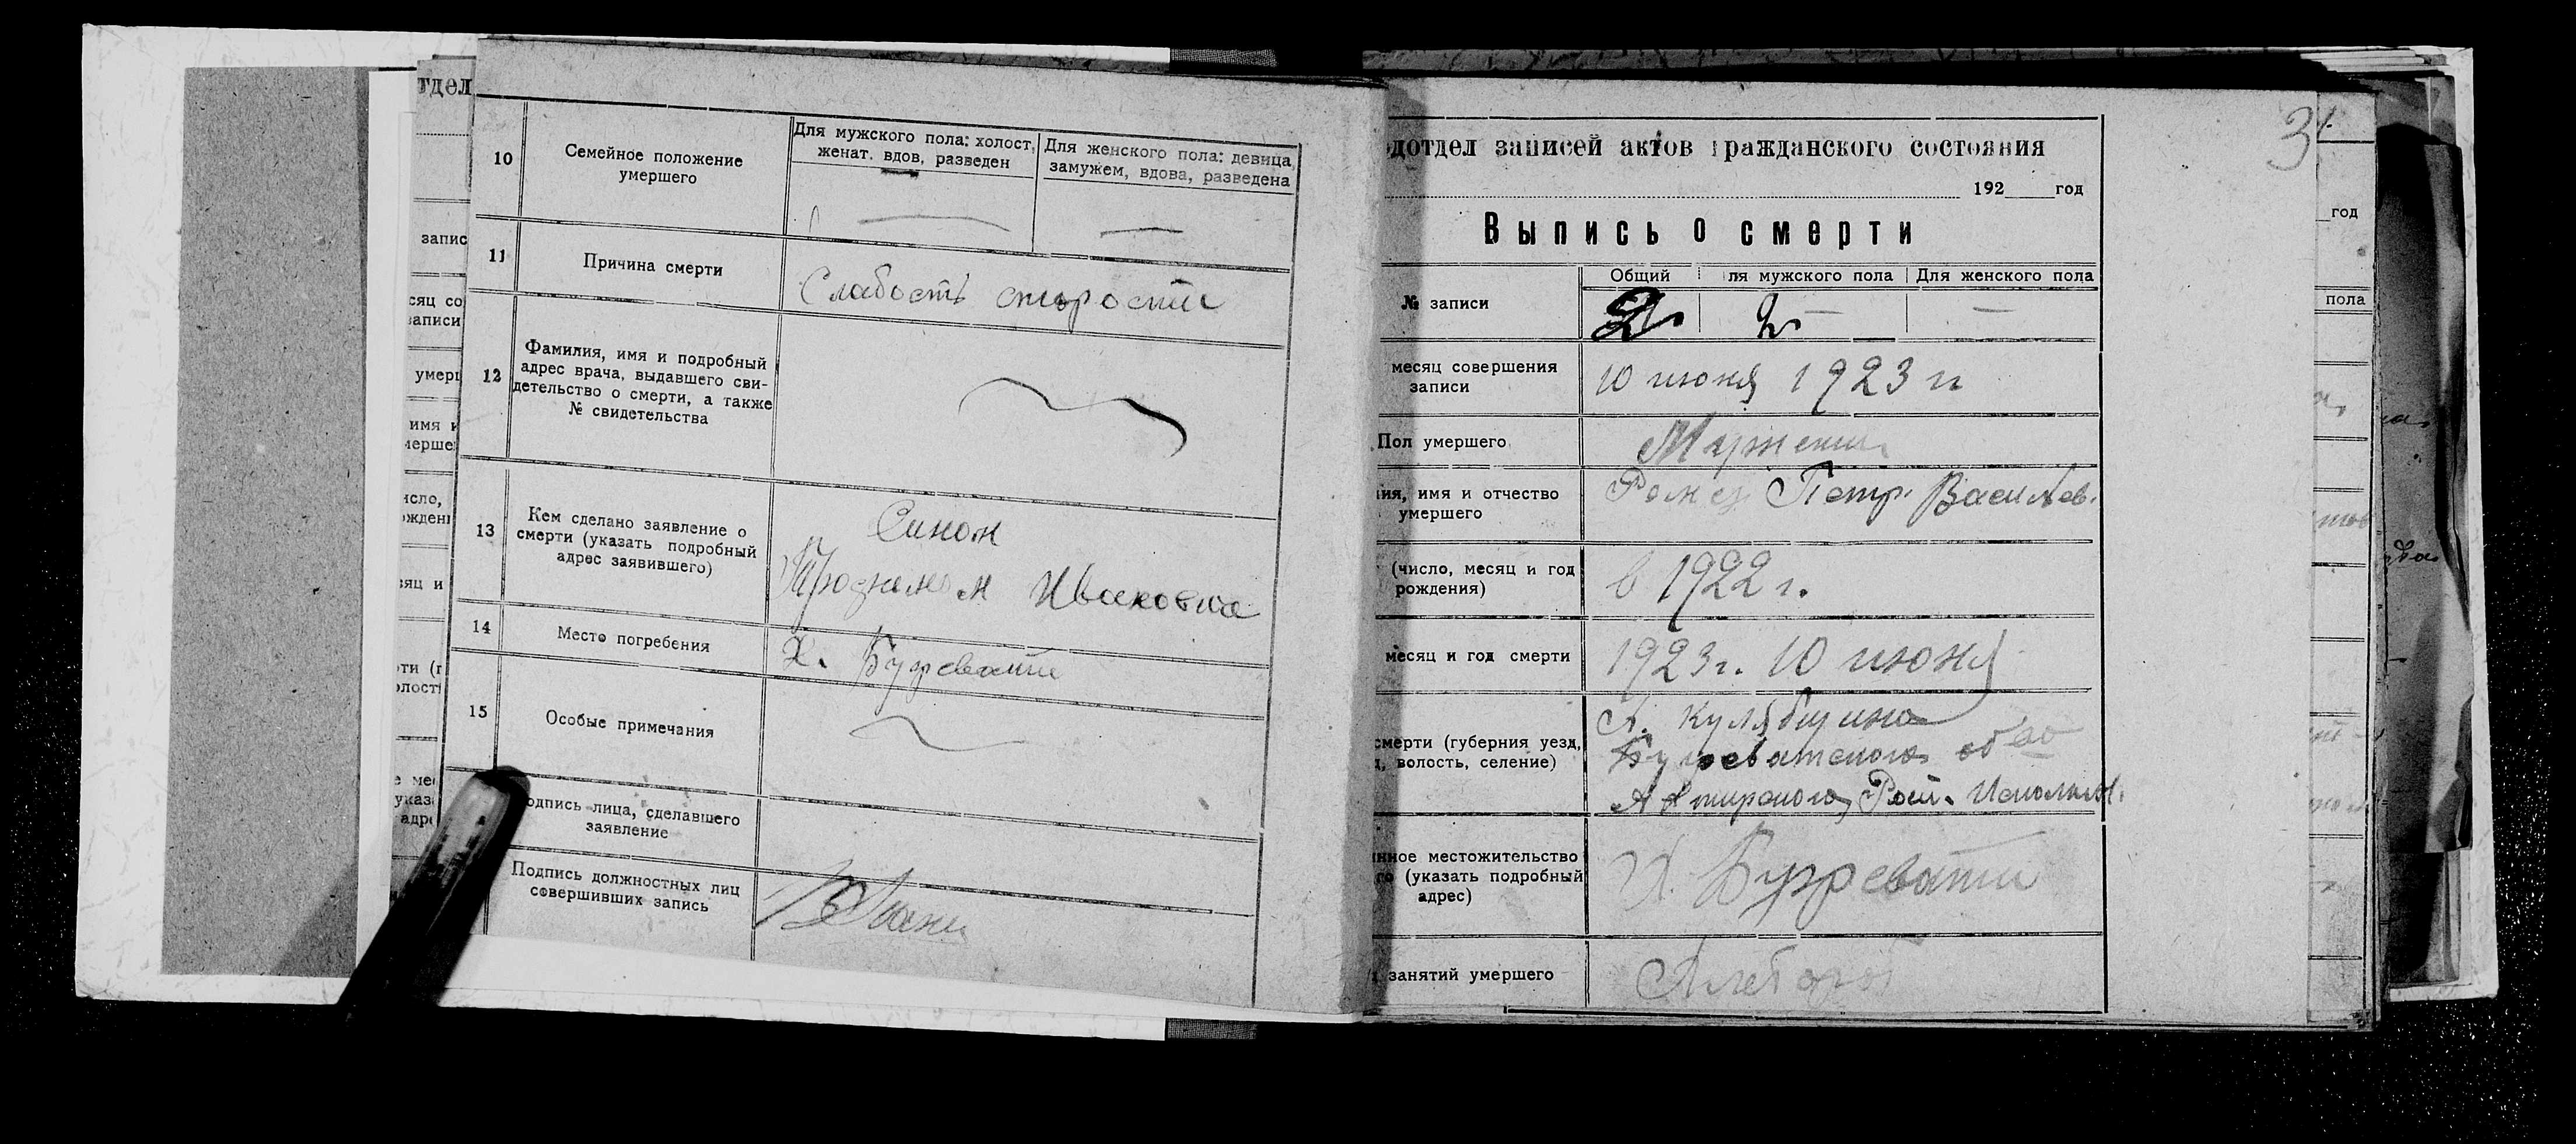 тдел
запис
сяц со
записи
умерш
имя и
мерше
исло,
ождени
сяц и
ти (г
олост
е мес
указа
адре
10
Семейное положение
умершего
Для мужского пола: холост,
женат. вдов, разведен
Для женского пола: девица,
замужем, вдова, разведена
11
Причина смерти
Слабость старости
12
Фамилия, имя и подробный
адрес врача, выдавшего сви-
детельство о смерти, а также
№ свидетельства
13
Кем сделано заявление о
смерти (указать подробный
адрес заявившего)
Сином
14
Место погребения
Х. Бугреватий
15
Особые примечания
одпись лица, сделавшего
заявление
Подпись должностных лиц
совершивших запись
31
дотдел записей актов гражданского состояния
192 год
Выпись о смерти
Общий
ля мужского пола
Для женского пола
№ записи
2
2
месяц совершения
записи
10 июня 1923 г
Пол умершего
Мужский
ия, имя и отчество
умершего
Петр Василев.
(число, месяц и год
рождения)
в 1922 г.
месяц и год смерти
1923 г. 10 июня
смерти (губерния уезд,
д, волость, селение)
Бугреватского об-во
Ахтирского Рай. Исполком.
нное местожительство
го (указать подробный
адрес)
Х. Бугреватий
занятий умершего
Хлебороб
год
пола